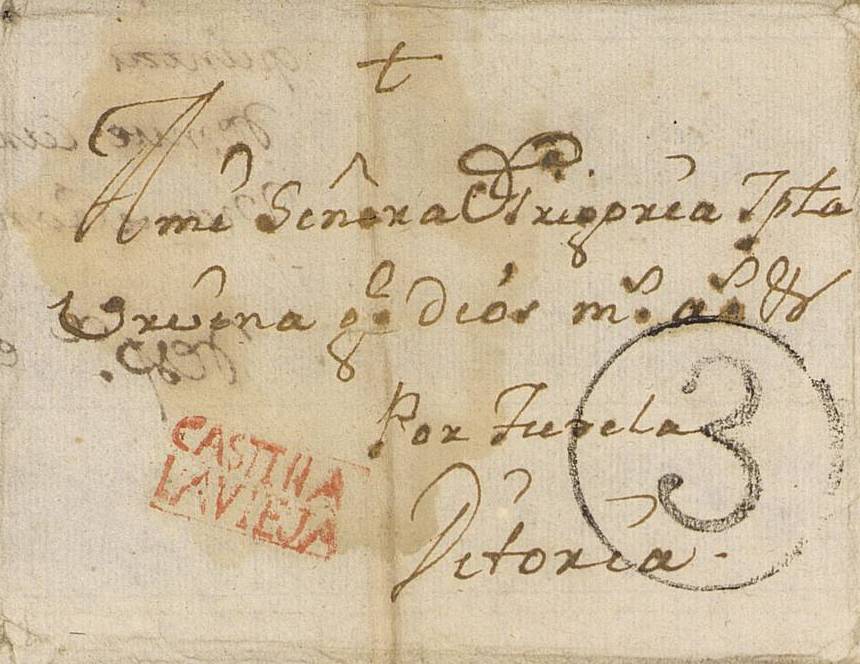 A mi Señora Dª Grigoria Ipta
Urvina gᵉ dios mˢ aˢ &
Por Tudela
Vitoria.
CASTILLA
LA VIEJA
3